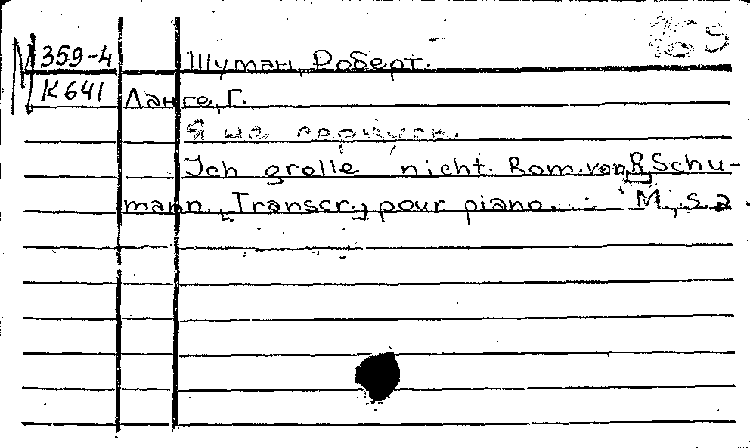 169
M 359-4
Шуман, Роберт.
К 641
Ланге, Г.
Я не сержусь.
Ich grolle nicht. Rom. von R. Schu-
mann. [Transcr.] pour piano. М., s. a.